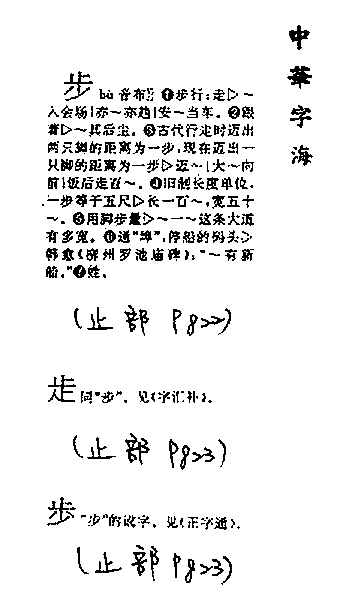 中華字海
步 bù 音布 ❶步行:走▷~
入会场|亦~亦趋|安~当车。❷跟
着▷~其后尘。❸古代行走时迈出
两只脚的距离为一步,现在迈出一
只脚的距离为一步▷迈~|大~向
前|饭后走百~。❹旧制长度单位,
一步等于五尺▷长一百~,宽五十
~。❺用脚步量▷~一~这条大道
有多宽。❻通“埠”,停船的码头▷
韩愈《柳州罗池庙碑》:“~有新
船。”❼姓。
(止部 Pg22)
同“步”。见《字汇补》。
(止部 Pg23)
歩 “步”的讹字。见《正字通》。
(止部 Pg23)